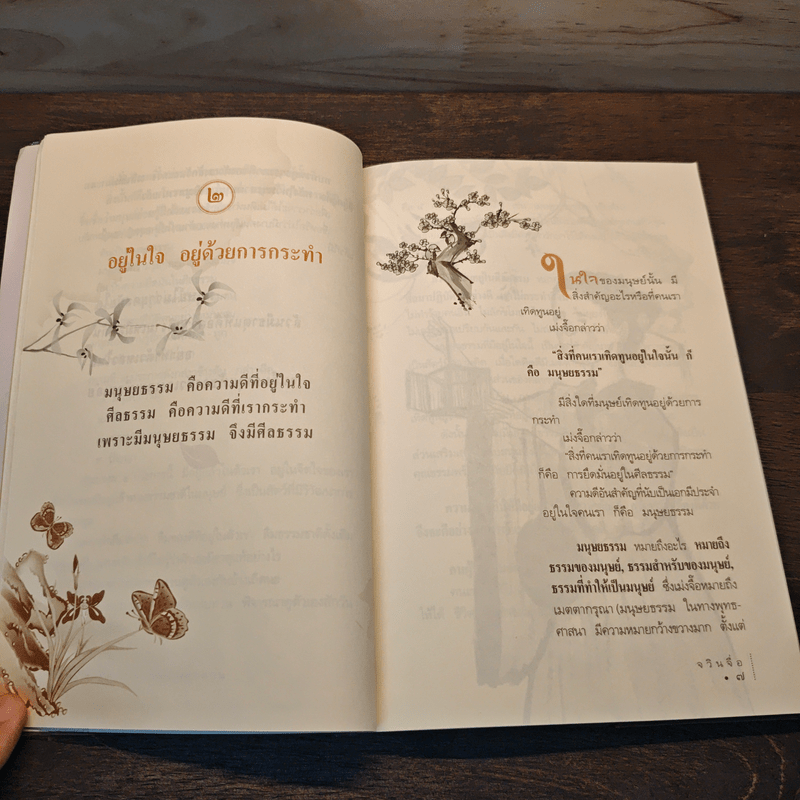 ๒
อยู่ในใจ อยู่ด้วยการกระทำ
มนุษยธรรม คือความดีที่อยู่ในใจ
ศีลธรรม คือความดีที่เรากระทำ
เพราะมีมนุษยธรรม จึงมีศีลธรรม
ในใจของมนุษย์นั้น มี
สิ่งสำคัญอะไรหรือที่คนเรา
เทิดทูนอยู่
เม่งจื๊อกล่าวว่า
"สิ่งที่คนเราเทิดทูนอยู่ในใจนั้น ก็
คือ มนุษยธรรม"
มีสิ่งใดที่มนุษย์เทิดทูนอยู่ด้วยการ
กระทำ
เม่งจื๊อกล่าวว่า
"สิ่งที่คนเราเทิดทูนอยู่ด้วยการกระทำ
ก็คือ การยึดมั่นอยู่ในศีลธรรม"
ความดีอันสำคัญที่นับเป็นเอกมีประจำ
อยู่ในใจคนเรา ก็คือ มนุษยธรรม
มนุษยธรรม หมายถึงอะไร หมายถึง
ธรรมของมนุษย์, ธรรมสำหรับของมนุษย์,
ธรรมที่ทำให้เป็นมนุษย์ ซึ่งเม่งจื๊อหมายถึง
เมตตากรุณา (มนุษยธรรม ในทางพุทธ-
ศาสนา มีความหมายกว้างขวางมาก ตั้งแต่
จวินจื่อ
• ๗